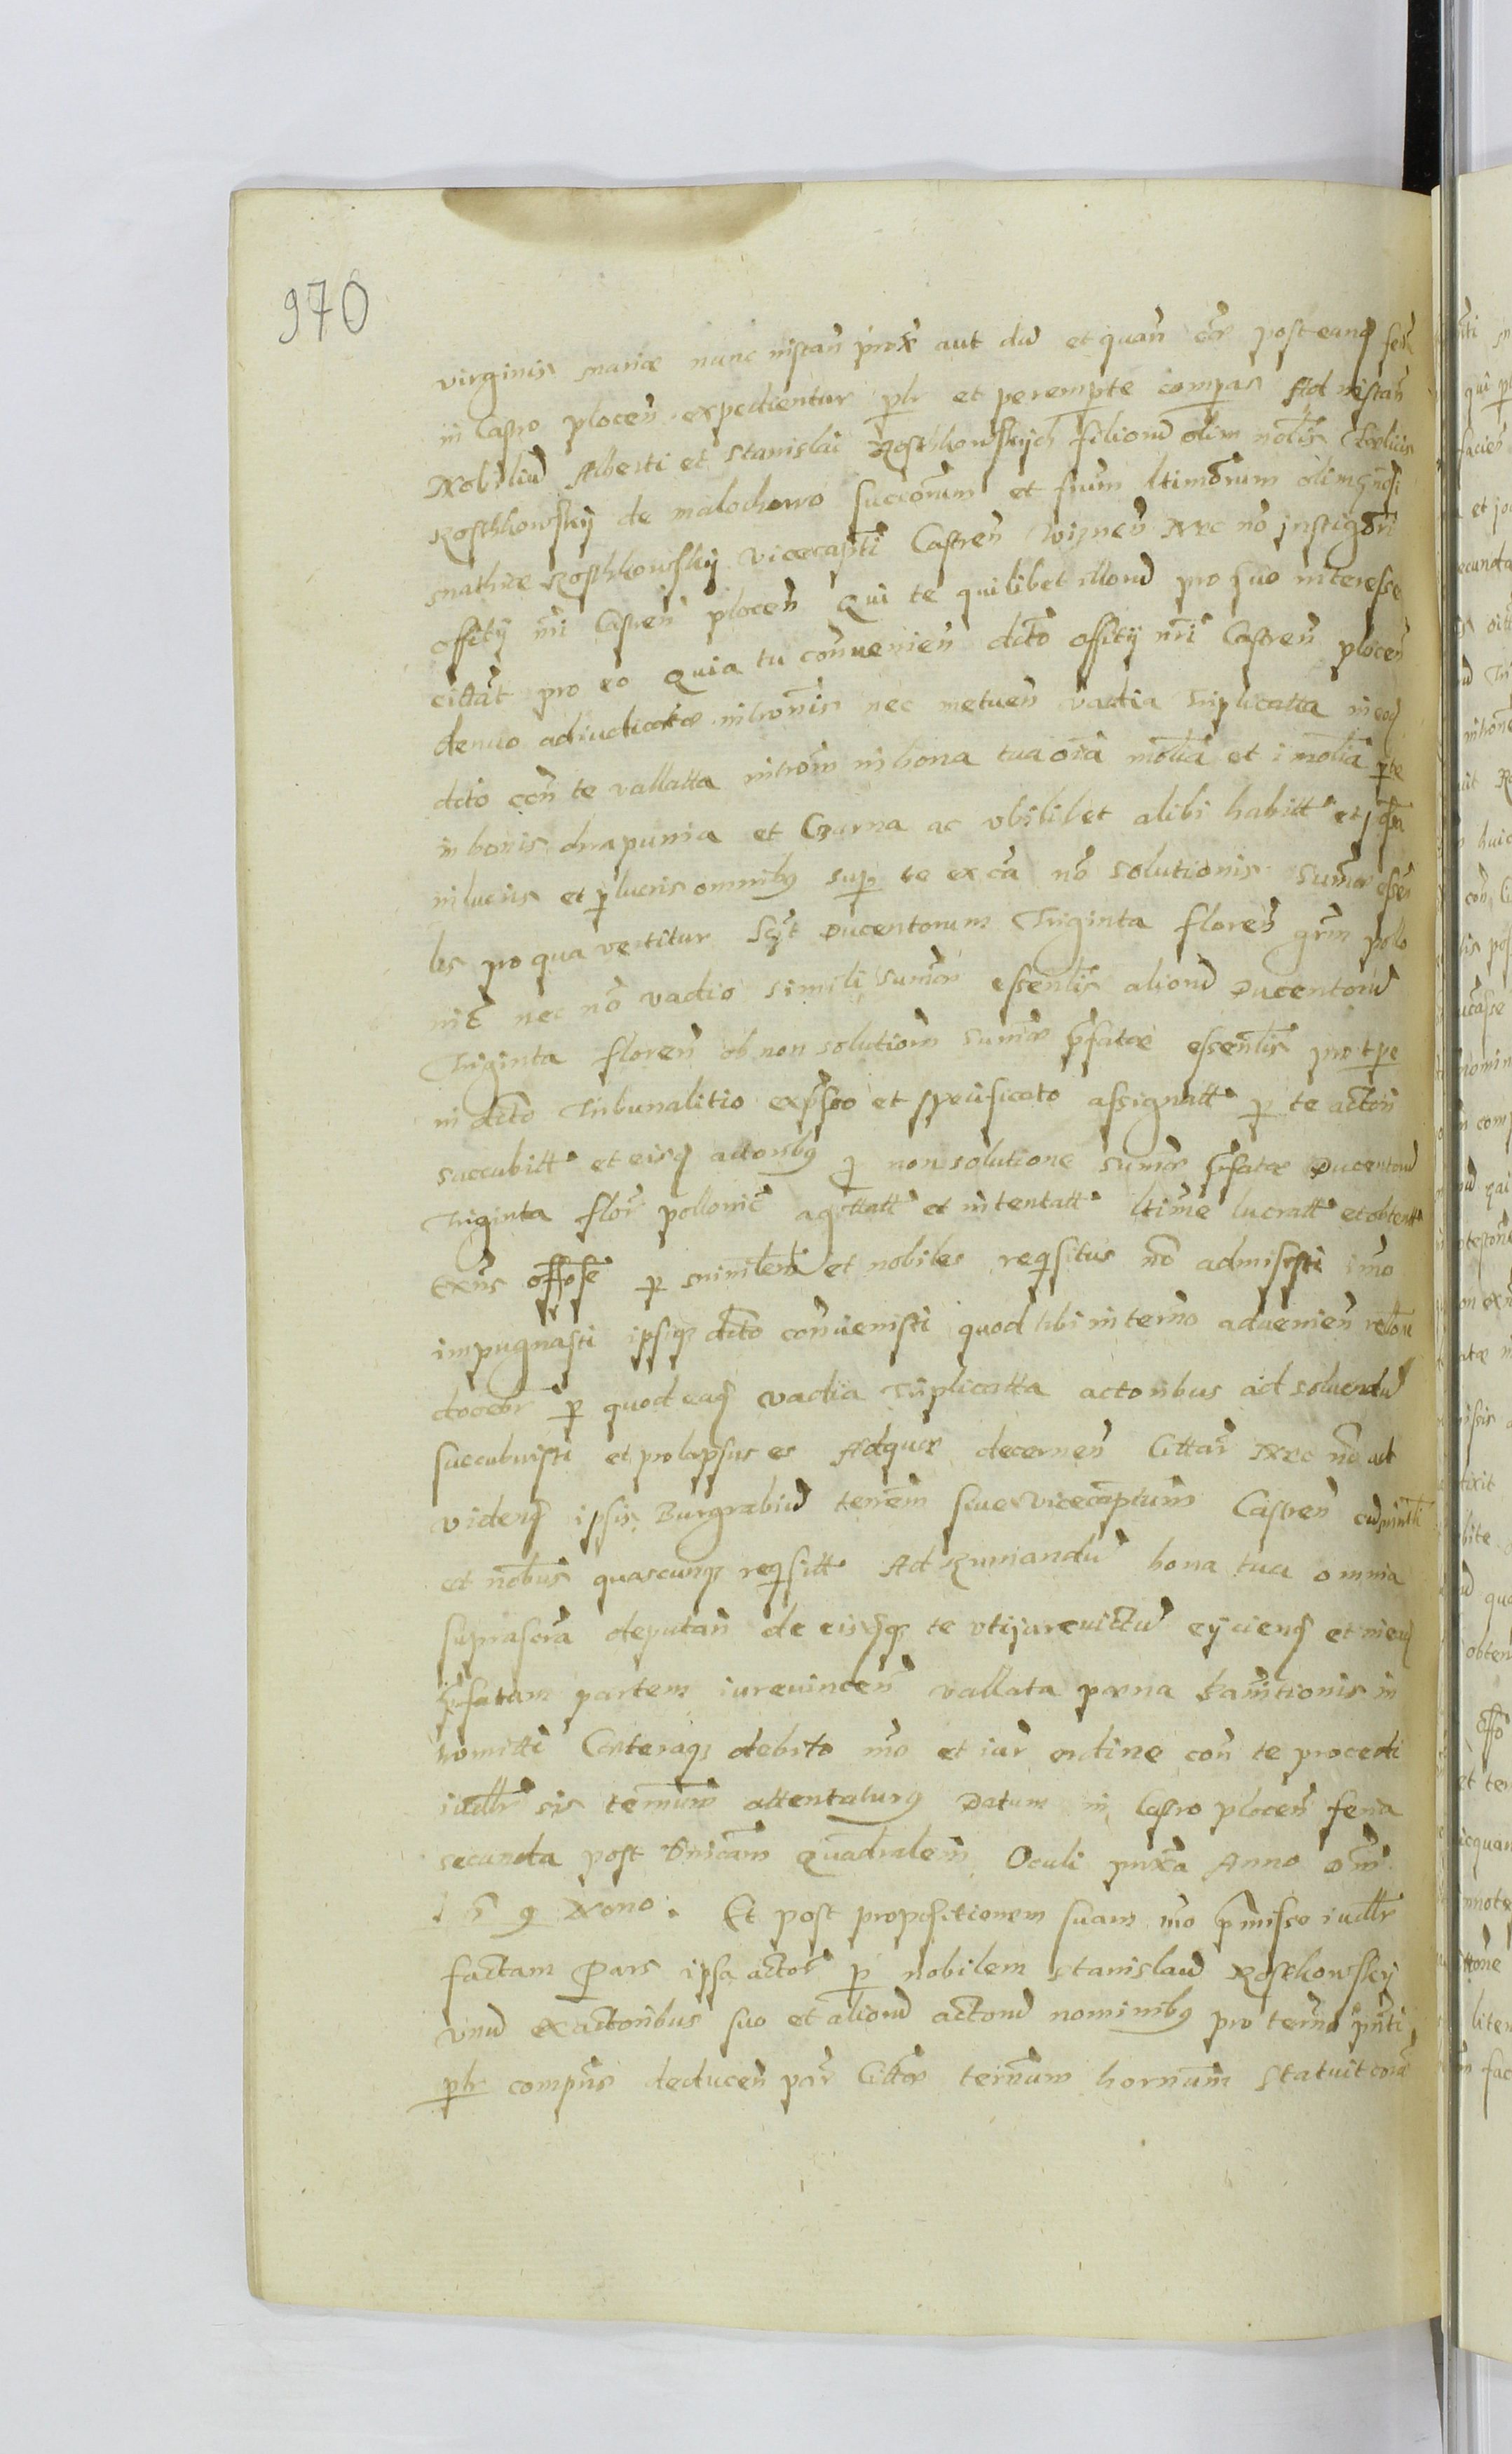 970
virginis mariæ nunc instan̄ prox̄ aut dū et quan̄ cæ post eanq̄ fer̄
in Castro plocen̄ expedientur plr̄ et perempte compas Ad instan̄
Nobiliū Alberti et Stanislai Rosthkowskych filiorū olim nolis̄ Fœlicis
Rosthkowsky de malochowo succōrum et frum ltimōrum olim gn̄osi
mathiæ Rosthkowsky vicecapti Castren̄ wiznen̄ Nec nō instigōri
officy nr̄i Castren̄ plocen̄ Qui te quilibet illorū pro suo interesse
cittāt pro eo Quia tu conuenien̄ dcto officy nr̄i Castren̄ plocen̄
denuo adiudicatæ intronis̄ nec metuen̄ vadia triplicatta in eod̄
dcto con̄ te vallatta introm̄ in bona tua oīa mōlia et imōlia pte
in bonis drapunia et Czarna ac vbilibet alibi habitt et
in lucris et p lucris omnibꝫ sup te ex cā nō solutionis summæ essen
lis pro qua vertitur Sc̄t Ducentorum Triginta floren̄ grm̄ pollo
nic̄ nec nō vadio simili summæ essenlis̄ aliorū Ducentorū
Triginta floren̄ ob non solutiom̄ summæ p̄fatæ essenlis̄ pro tpe
in dcto Tribunalitio exp̄sso et specificato assignatt p te actori
succubitt et eisq̄ actoribꝫ p non solutione summæ p̄fatæ Ducentorū
Triginta flor̄ pollonic̄ aqittatt et intentatt ltime lucratt et obtentt
exn̄s offōse p minlem̄ et nobiles reqisitus nō admisisti imo
impugnasti ipsiqꝫ dcto conuenisti quod tibi in terno aduenien̄
docebr̄ p quod eaq̄ vadia triplicatta actoribus ad soluendū
succubuisti et prolapsus es Adquæ decernen̄ Cittar̄ Nec nō ad
videnq̄ ipsis Burgrabiū terrem̄ siue vicecaptum̄ Castren̄
et nobus̄ quascunqꝫ reqisitt Ad Rumandū bona tua omnia
suprascra deputan̄ de eisqꝫ te vti iureuictū eycienq̄ et in eaq̄
p̄fatam partem iureuincen̄ vallata pœna bannitionis in
tromitti Cæteraqꝫ debito mō et iur̄ ordine con̄ te procedi
iudllr̄ sis ternum̄ attentaturꝫ Datum in Castro plocen̄ feria
secunda post Dnicam̄ Quadralem̄ Oculi proxa Anno Dm̄
1 5 9 Nono. Et post propositionem suam mō p̄misso iudllr̄
factam Pars ipsa actor̄ p nobilem Stanislaū Rosthowsky
vnū ex actoribus suo et aliorū actorū nominibꝫ pro terno pnti
plr̄ compn̄s deducen̄ par̄ Cittæ ternum̄ hornum̄ statuit corā